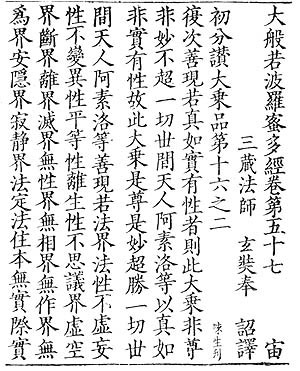 大般若波羅蜜多經卷第五十七 宙
三藏法師 玄奘奉 詔譯
初分讃大乘品第十六之二
復次善現若真如實有性者則此大乘非尊
非妙不超一切世間天人阿素洛等以真如
非實有性故此大乘是尊是妙超勝一切世
間天人阿素洛等善現若法界法性不虛妄
性不變異性平等性離生性不思議界虛空
界斷界離界滅界無性界無相界無作界無
爲界安隱界寂靜界法定法住本無實際實